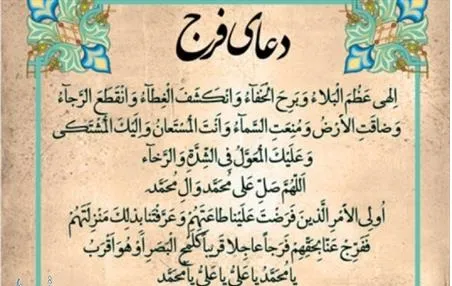 دعای فرج
اِلهی عَظُمَ الْبَلاءُ وَبَرِحَ الْخَفاءُ وَانْکَشَفَ الْغِطاءُ وَانْقَطَعَ الرَّجاءُ
وَضاقَتِ الْاَرْضُ وَمُنِعَتِ السَّماءُ وَاَنْتَ الْمُسْتَعانُ وَاِلَیْکَ الْمُشْتَکی
وَعَلَیْکَ الْمُعَوَّلُ فِی الشِّدَّةِ وَالرَّخاءِ
اَللّهُمَّ صَلِّ عَلی مُحَمَّدٍ وَالِ مُحَمَّدٍ
اُولِی الْاَمْرِ الَّذینَ فَرَضْتَ عَلَیْنا طاعَتَهُمْ وَعَرَّفْتَنا بِذلِکَ مَنْزِلَتَهُمْ
فَفَرِّجْ عَنّا بِحَقِّهِمْ فَرَجاً عاجِلا قَریباً کَلَمْحِ الْبَصَرِ اَوْ هُوَ اَقْرَبُ
یا مُحَمَّدُ یا عَلِیُّ یا عَلِیُّ یا مُحَمَّدُ